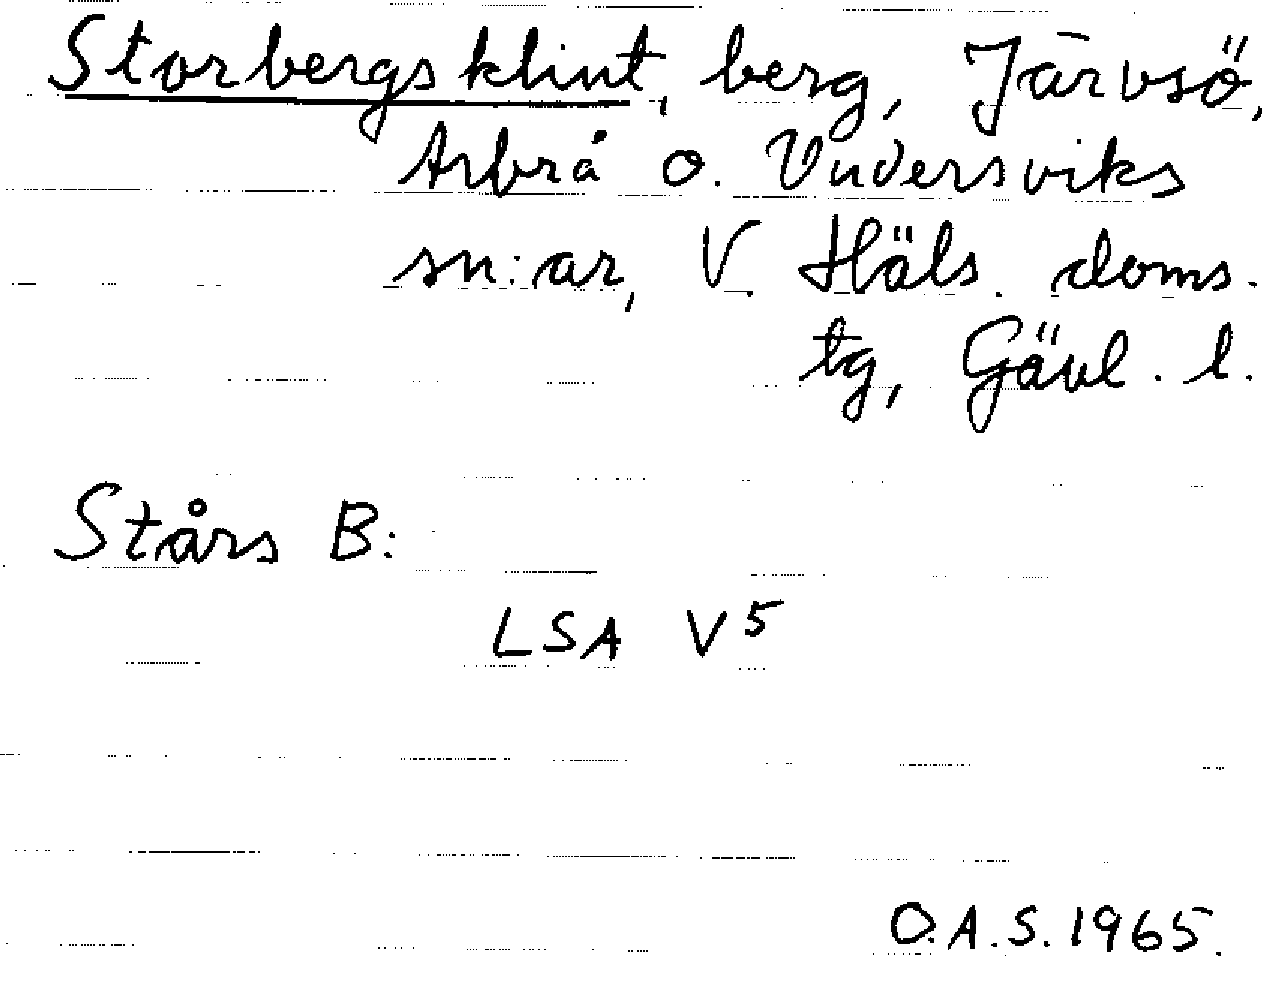 Storbergsklint, berg, Järvsö,
Arbrå o. Undersviks
sn:ar, V. Häls. doms.
tg, Gävl. l.
Stårs B:
LSA V5
O.A.S. 1965.